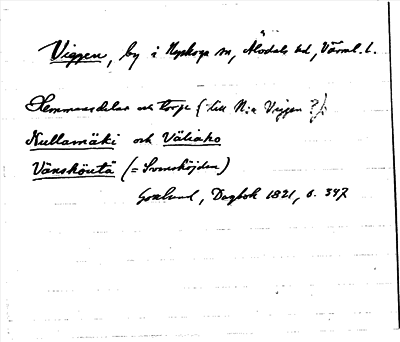 Viggen, by i Nyskoga sn, Älvdals hd, Värml. l.
Hemmansdelar och torp (till N:a Viggen?):
Kullamäki och Väliaho
Vänsköutä (= Svensköjden)
Gottlund, Dagbok 1821, s. 347